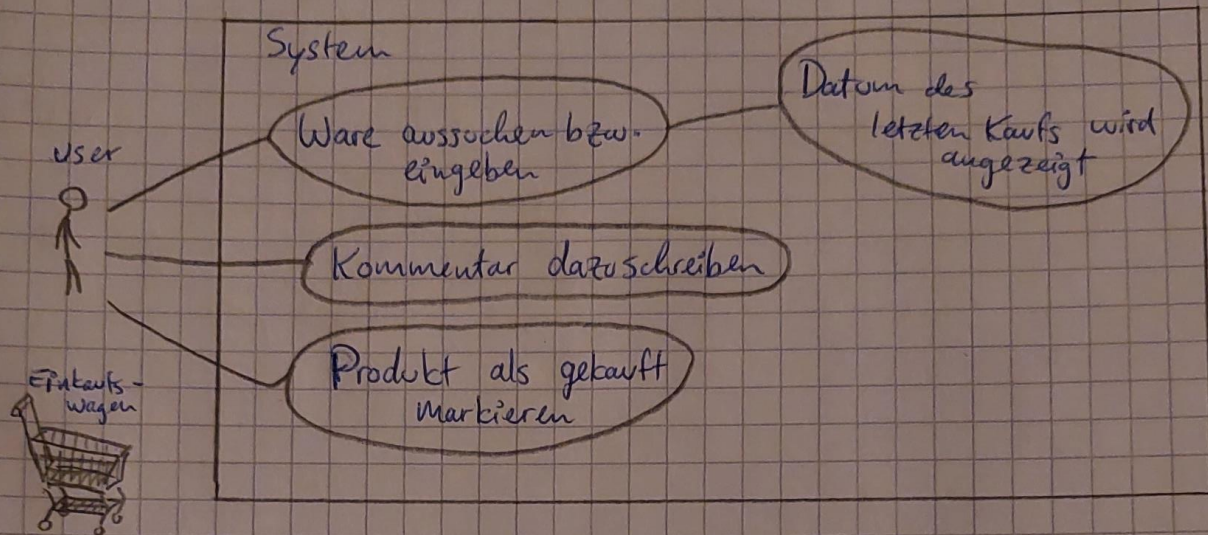 System
User
Ware aussuchen bzw.
eingeben
Datum des
letzten Kaufs wird
angezeigt
Kommentar dazuschreiben
Produkt als gekauft
markieren
Einkaufs-
wagen